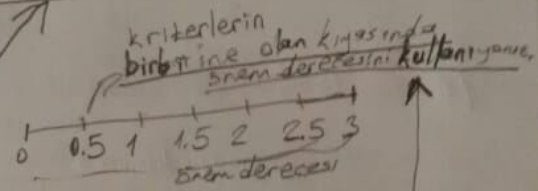 kriterlerin
birbirine olan kıyasında
önem derecesini kullanıyoruz.
0 0.5 1 1.5 2 2.5 3
önem derecesi